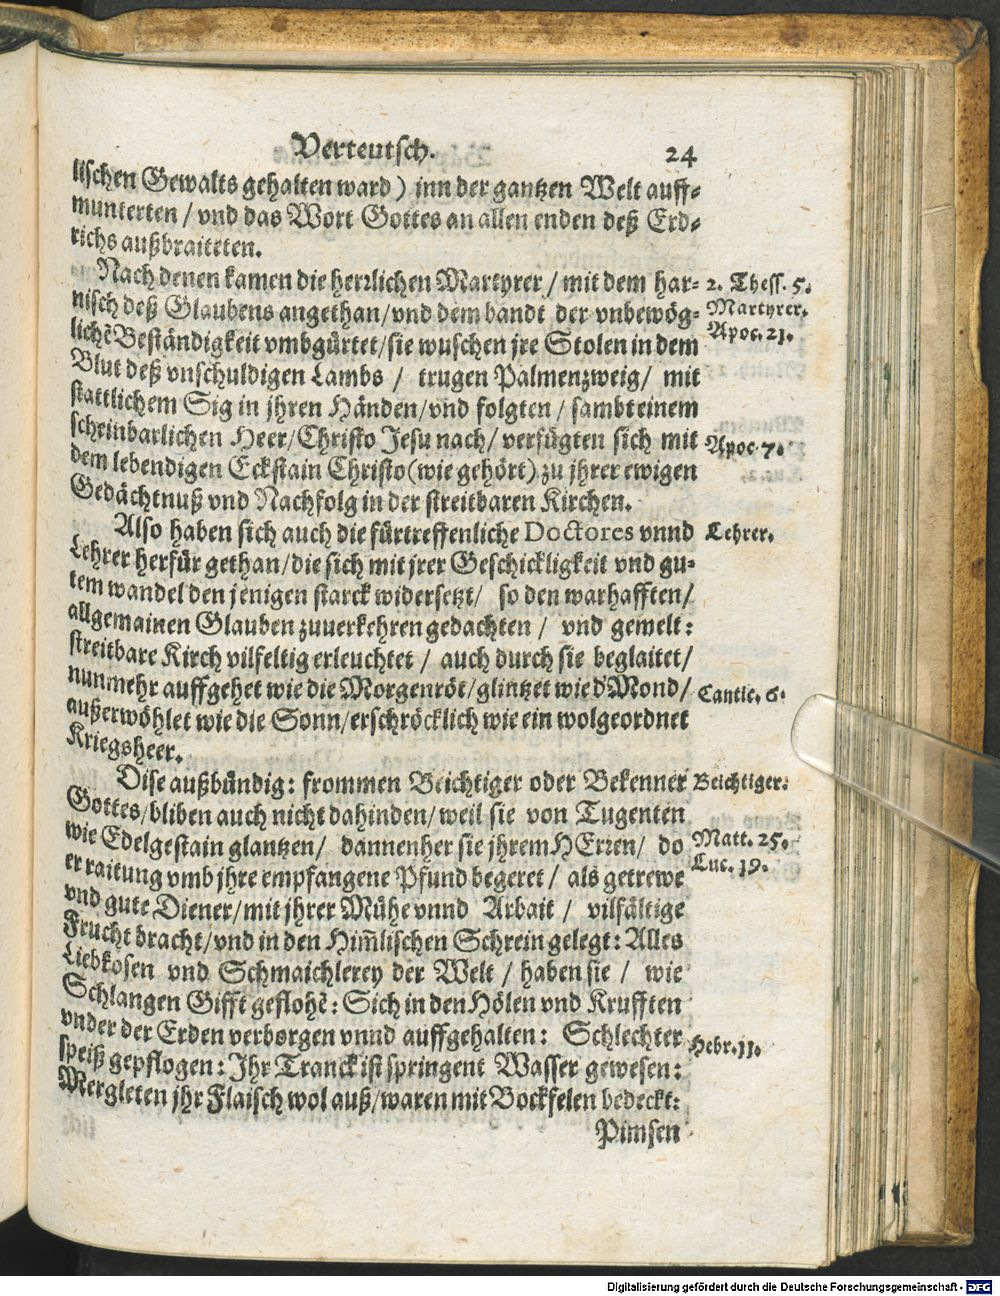 Verteutsch. 24
lischen Gewalts gehalten ward) inn der gantzen Welt auff-
munterten / vnd das Wort Gottes an allen enden deß Erd-
richs außbraiteten.
Nach denen kamen die herrlichen Martyrer / mit dem har- 2. Thess. 5.
nisch deß Glaubens angethan / vnd dem bandt der vnbewög- Martyrer.
lichẽ Beständigkeit vmbgürtet / sie wuschen jre Stolen in dem Apoc. 21.
Blut deß vnschuldigen Lambs / trugen Palmenzweig / mit
stattlichem Sig in jhren Händen / vnd folgten / sambt einem
scheinbarlichen Heer / Christo Jesu nach / verfügten sich mit Apoc. 7.
dem lebendigen Eckstain Christo (wie gehört) zu jhrer ewigen
Gedächtnuß vnd Nachfolg in der streitbaren Kirchen.
Also haben sich auch die fürtreffenliche Doctores vnnd Lehrer.
Lehrer herfür gethan / die sich mit jrer Geschickligkeit vnd gu-
tem wandel den jenigen starck widersetzt / so den warhafften /
allgemainen Glauben zuuerkehren gedachten / vnd gemelt:
streitbare Kirch vilfeltig erleuchtet / auch durch sie beglaitet /
nunmehr auffgehet wie die Morgenröt / glintzet wie d' Mond / Cantic. 6.
außerwöhlet wie die Sonn / erschröcklich wie ein wolgeordnet
Kriegsheer.
Dise außbündig: frommen Beichtiger oder Bekenner Beichtiger.
Gottes / bliben auch nicht dahinden / weil sie von Tugenten
wie Edelgestain glantzen / dannenher sie jhrem HErren / do Matt. 25.
er raitung vmb jhre empfangene Pfund begeret / als getrewe Luc. 19.
vnd gute Diener / mit jhrer Mühe vnnd Arbait / vilfältige
Frucht bracht / vnd in den Him̃lischen Schrein gelegt: Alles
Liebkosen vnd Schmaichlerey der Welt / haben sie / wie
Schlangen Gifft geflohẽ: Sich in den Hölen vnd Krufften
vnder der Erden verborgen vnnd auffgehalten: Schlechter Hebr. 11.
speiß gepflogen: Jhr Tranck ist springent Wasser gewesen:
Mergleten jhr Flaisch wol auß / waren mit Bockfelen bedeckt:
Pimsen
Digitalisierung gefördert durch die Deutsche Forschungsgemeinschaft - DFG